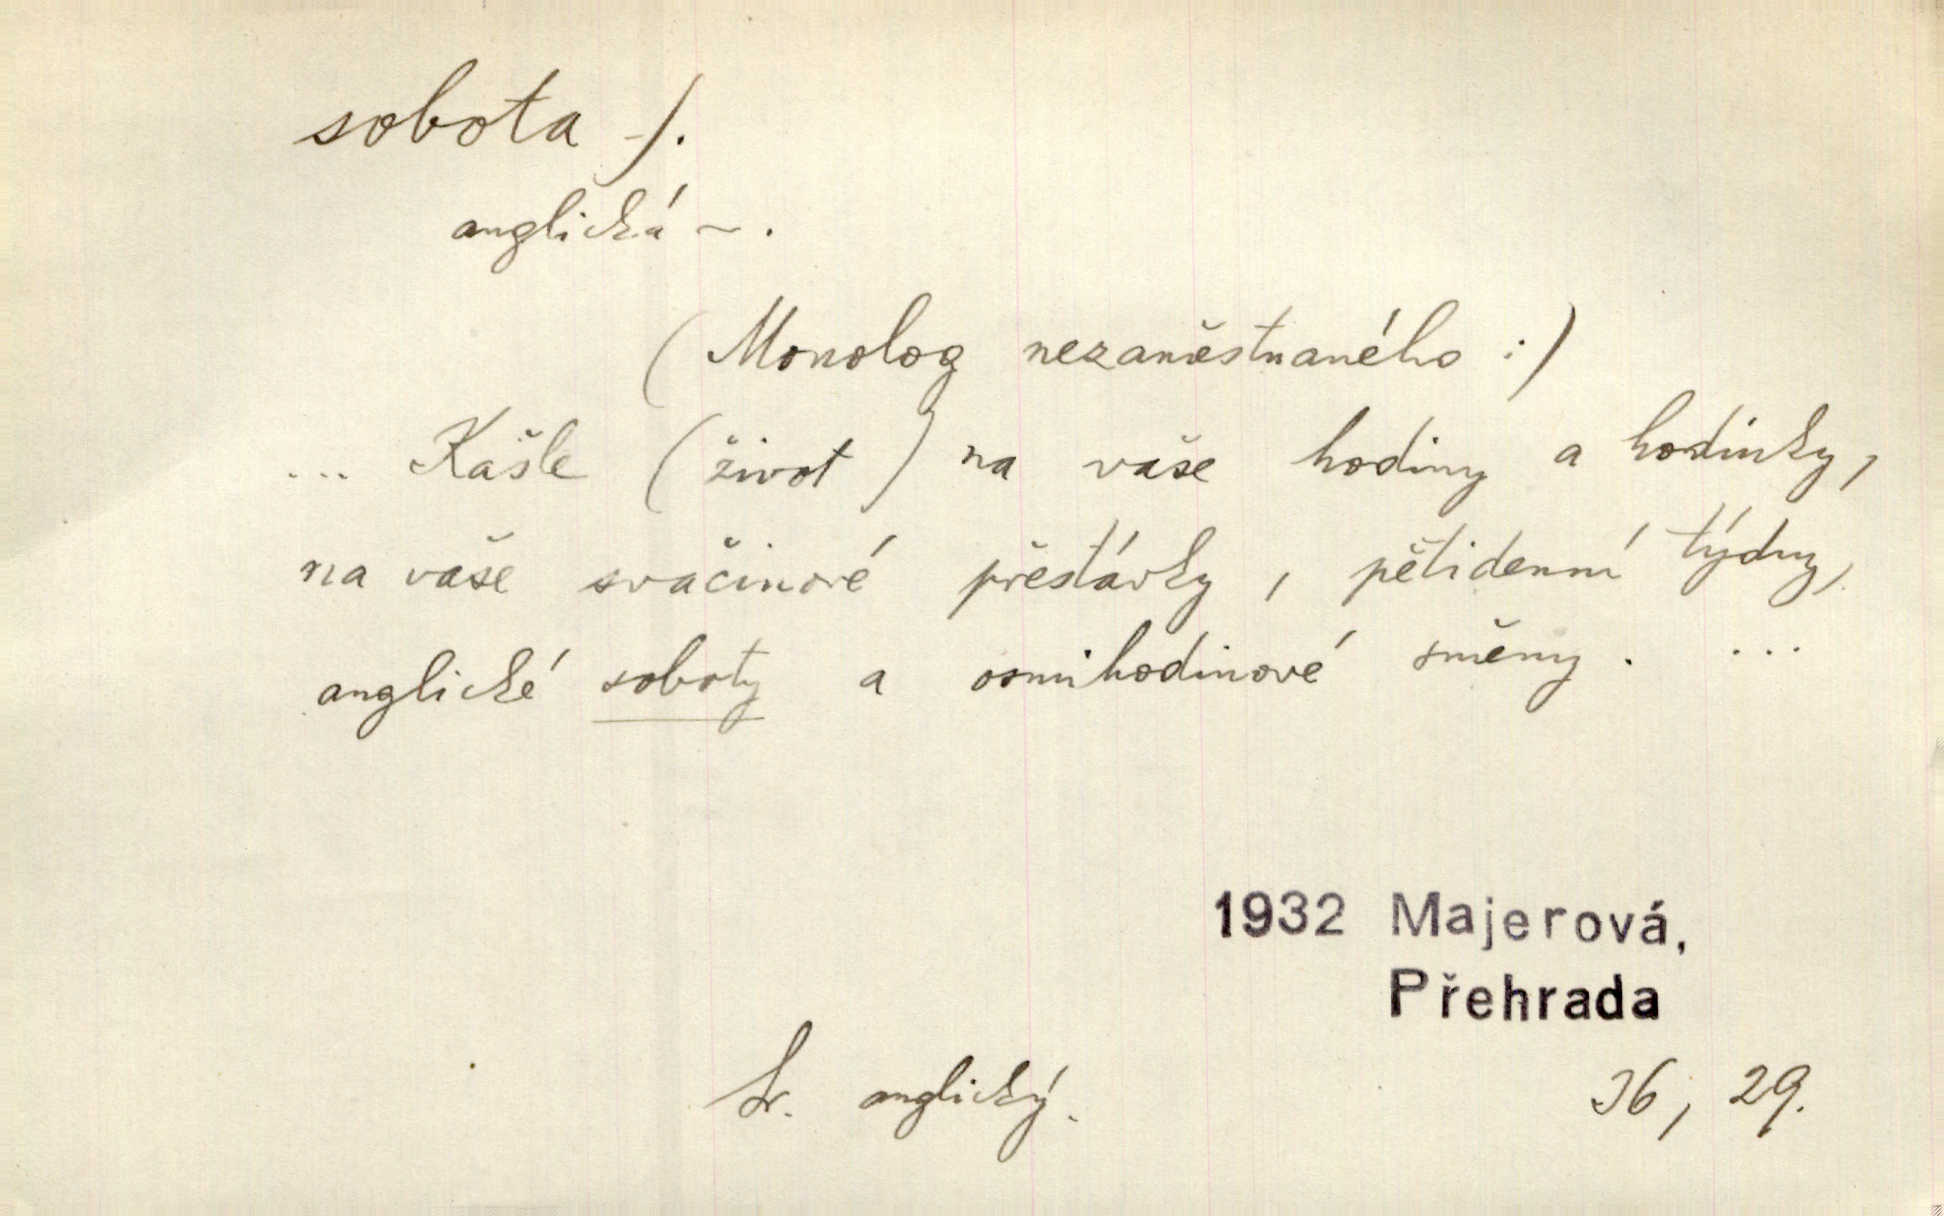 sobota f.
anglická ~.
(Monolog nezaměstnaného :)
... Kašle (život) na vaše hodiny a hodinky,
na vaše svačinové přestávky, pětidenní týdny,
anglické soboty a osmihodinové směny. ...
1932 Majerová,
Přehrada
Sr. anglický. 36, 29.